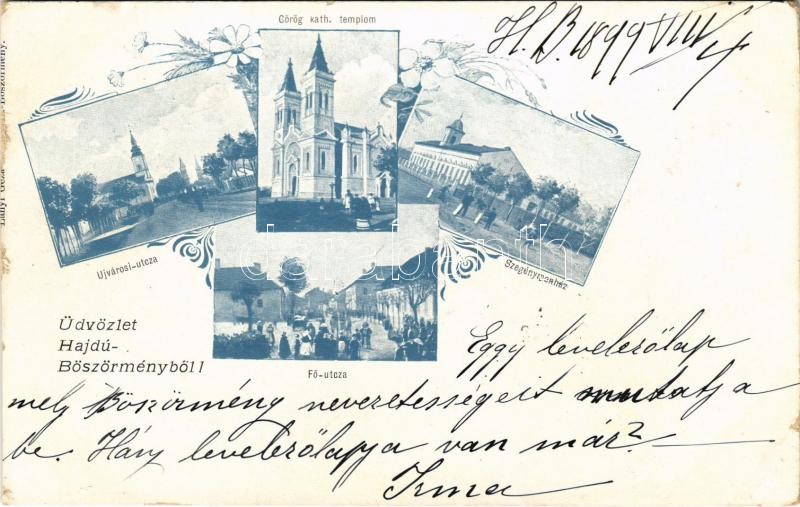 Görög kath. templom
H. B. 1899 VIII/4
Lányi Géza Böszörmény.
Ujvárosi-utcza
Szegénymenház
darabanth
Üdvözlet
Hajdú-
Böszörményből!
Fő-utcza
Eggy levelezőlap
mely Böszörmény nevezetességeit mutatja
be. Hány levelezőlapja van már?
Irma